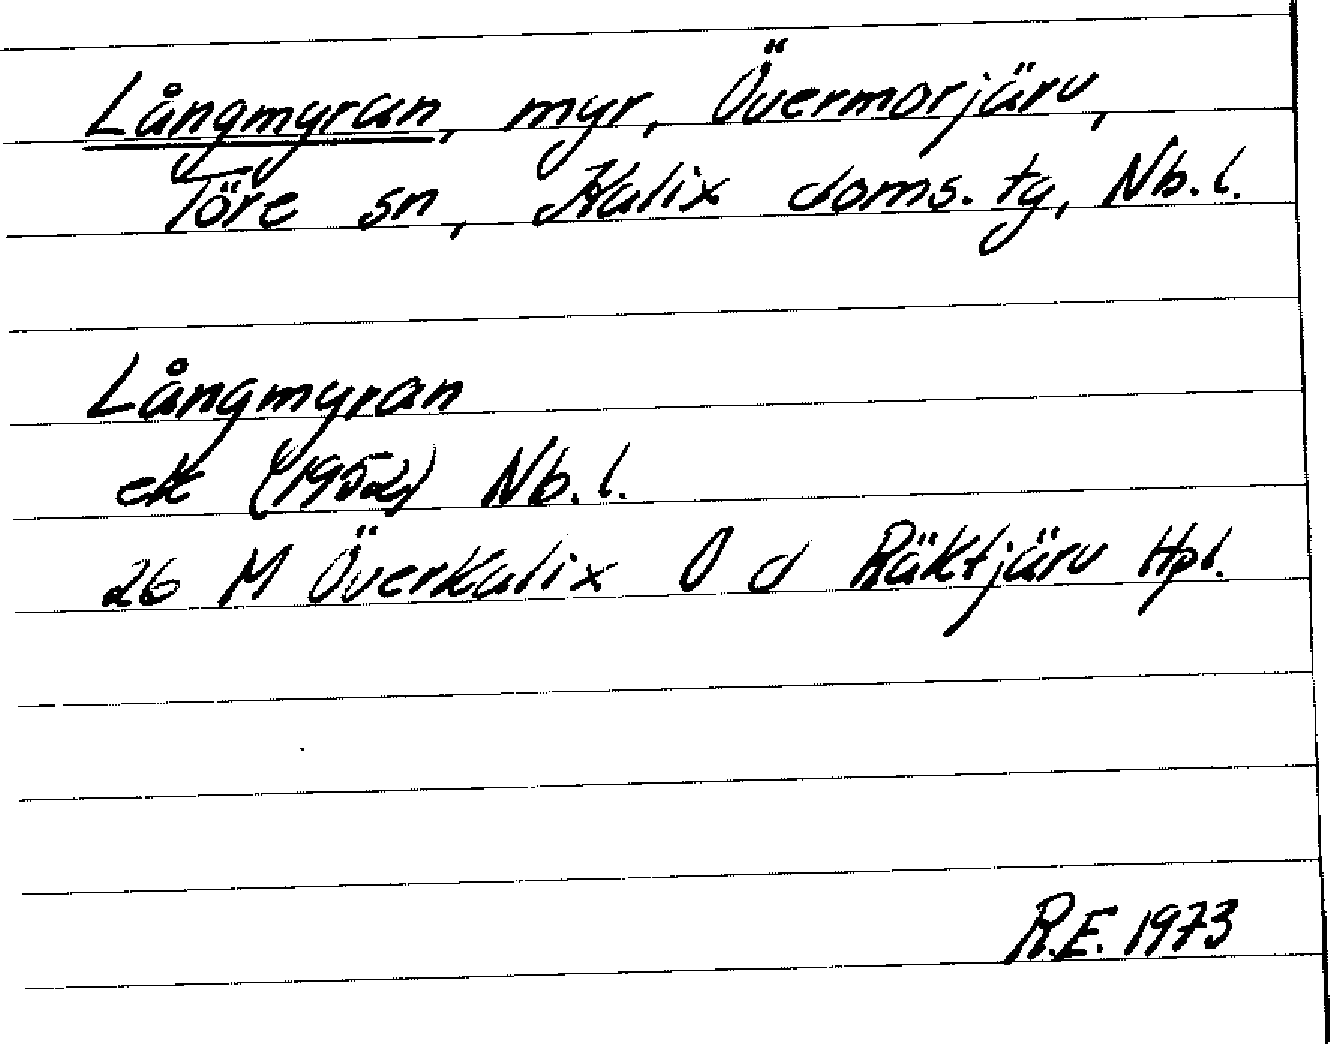 Långmyran, myr, Övermorjärv,
Töre sn, Kalix doms. tg, Nb. l.
Långmyran
ek (1952) Nb. l.
26 M Överkalix O d Räktjärv Hpl.
R.E. 1973